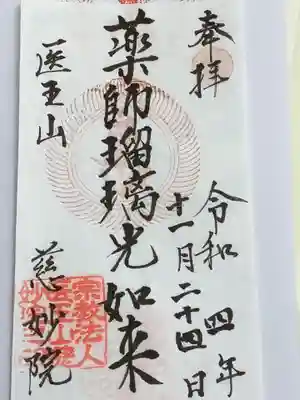 奉拝
令和四年
十一月二十四日
薬師瑠璃光如来
医王山
慈妙院
宗教法人